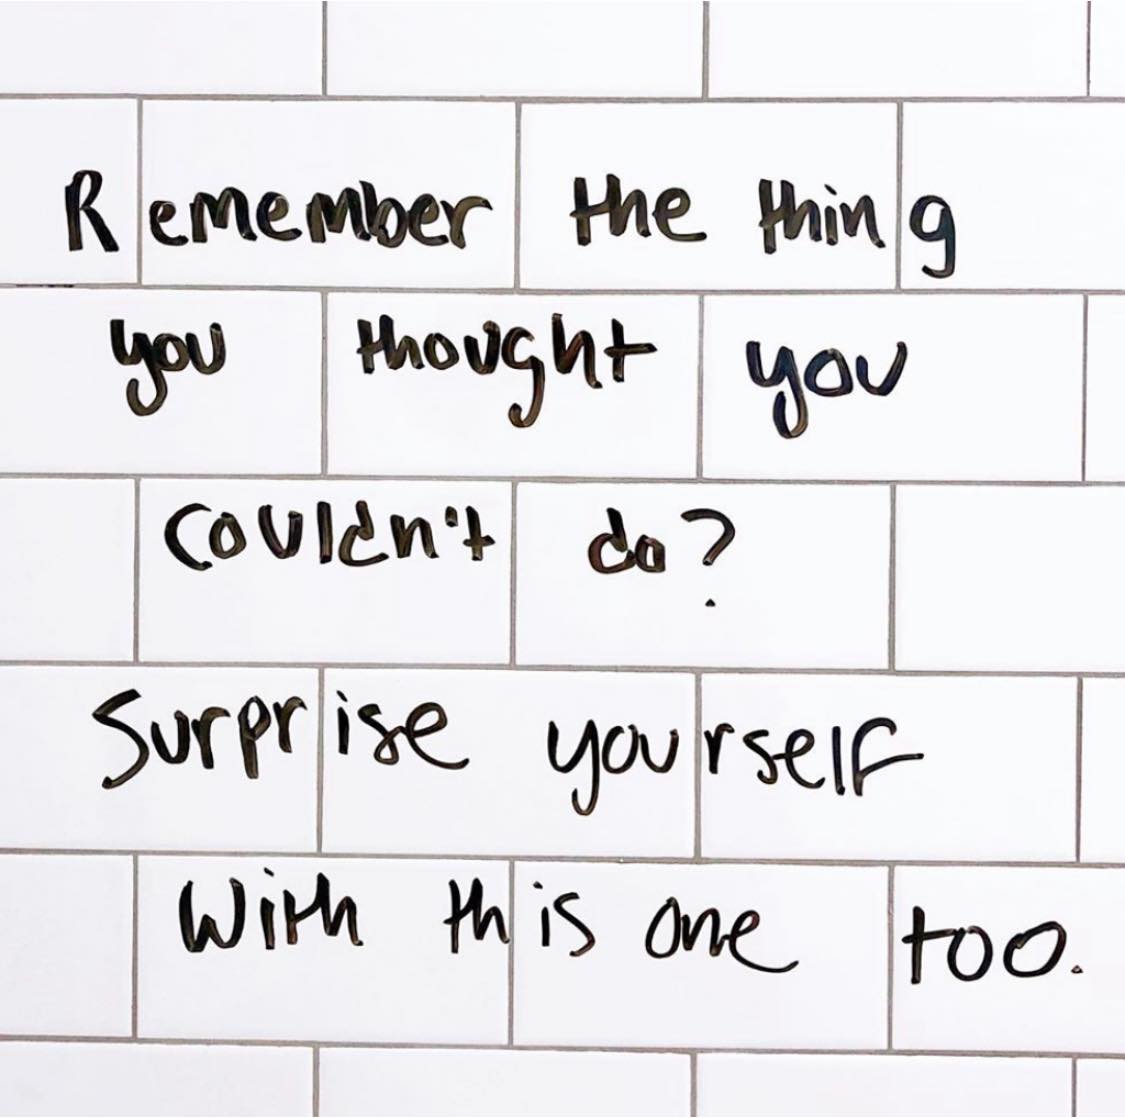 Remember the thing
you thought you
couldn't do?
Surprise yourself
with this one too.